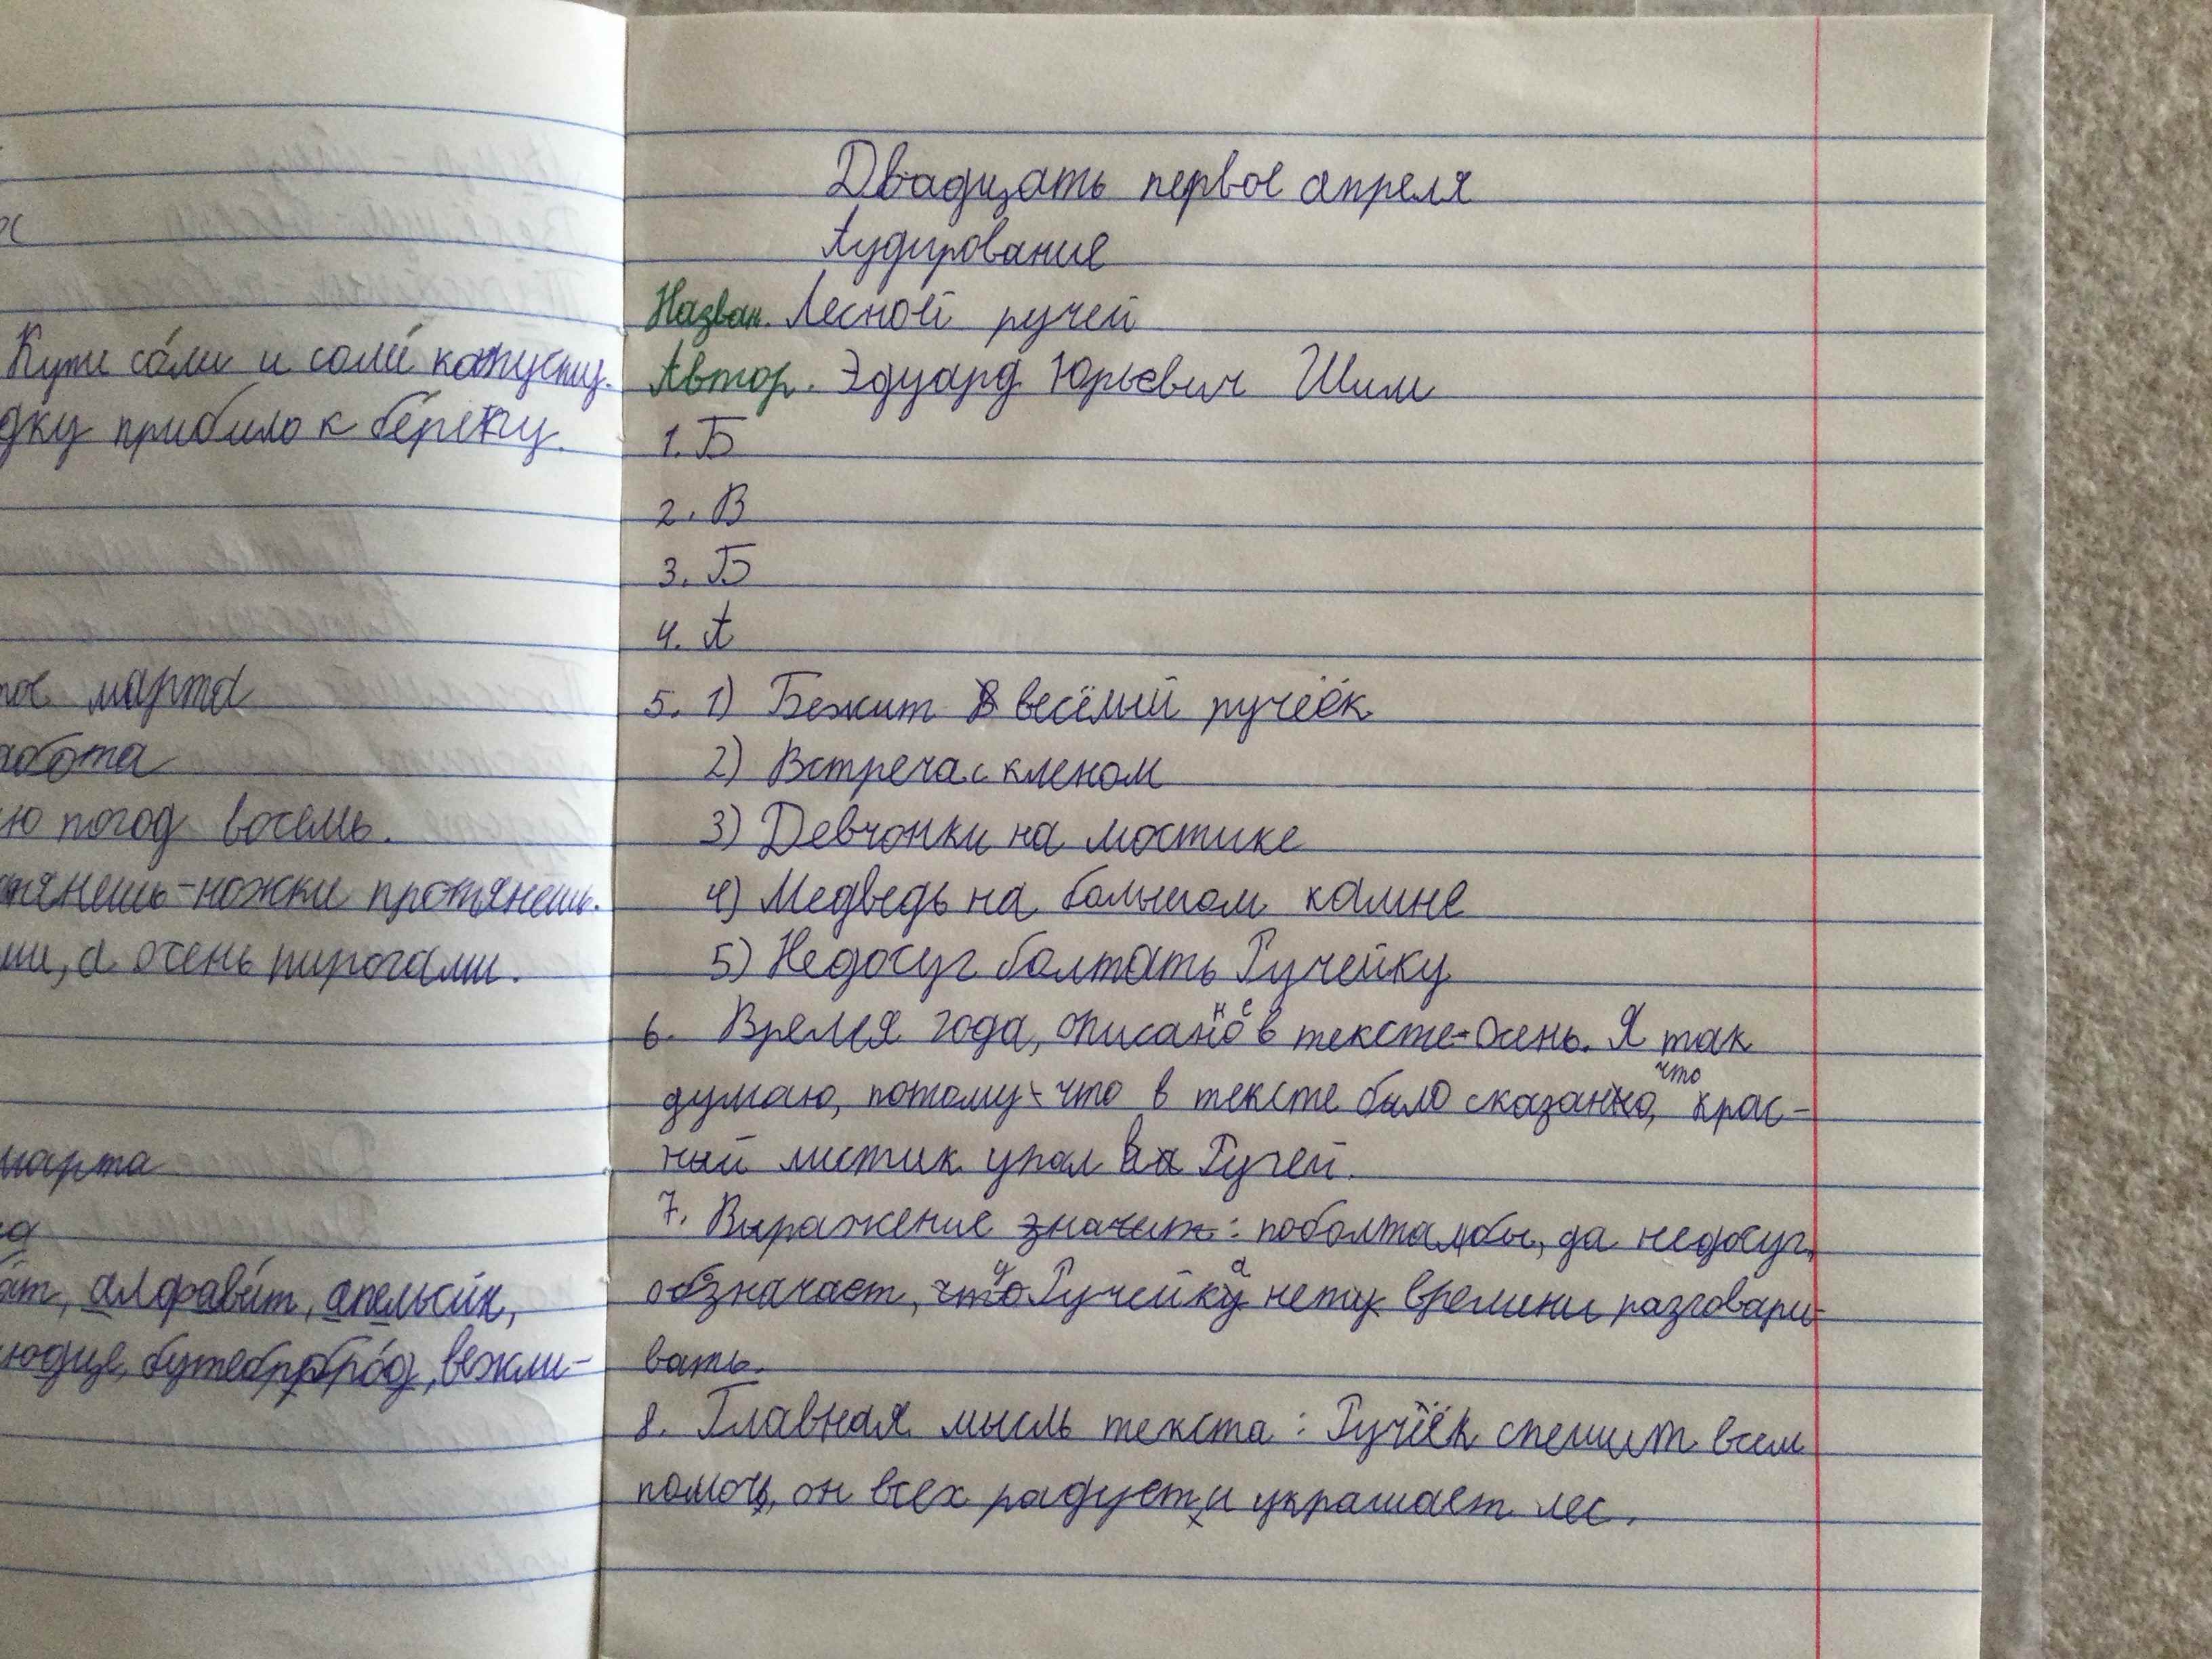 Кути са́ми и соли́ капусту.
дку прибило к бе́регу.
ое марта
абота
ю погод восемь.
тянешь-ножки протянешь.
ми, а осень пирогами.
марта
а́т, алфави́т, апельси́н,
людце, бутербро́д, вежли-
Двадцать первое апреля
Аудирование
Назван. Лесной ручей
Автор. Эдуард Юрьевич Шим
1. Б
2. В
3. Б
4. А
5. 1) Бежит весёлый ручеёк
2) Встреча с кленом
3) Девчонки на мостике
4) Медведь на большом камне
5) Недосуг болтать Ручейку
6. Время года, описанное в тексте-осень. Я так
думаю, потому что в тексте было сказано, что крас-
ный листик упал на Ручей.
7. Выражение значит: поболтал бы, да недосуг,
обозначает, что у Ручейка нету времени разговари-
вать.
8. Главная мысль текста: Ручеёк спешит всем
помочь, он всех радует и украшает лес.